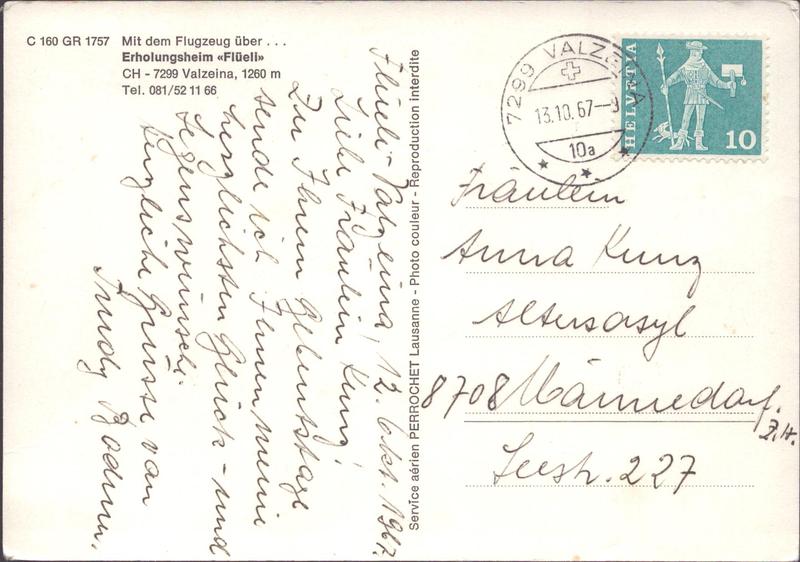 C 160 GR 1757 Mit dem Flugzeug über . . .
Erholungsheim «Flüeli»
CH - 7299 Valzeina, 1260 m
Tel. 081/52 11 66
Flüeli-Valzeina, 12. Okt. 1967.
Liebe Fräulein Kunz,
Zu Ihrem Geburtstage
sende ich Ihnen meine
herzlichsten Glück- und
Segenswünsche.
Herzliche Grüsse von
Trudy
Service aérien PERROCHET Lausanne - Photo couleur - Reproduction interdite
7299 VALZEINA
13.10.67-9
10a
HELVETIA
10
Fräulein
Anna Kunz
Altersasyl
8708 Männedorf.
Z.H.
Seestr. 227